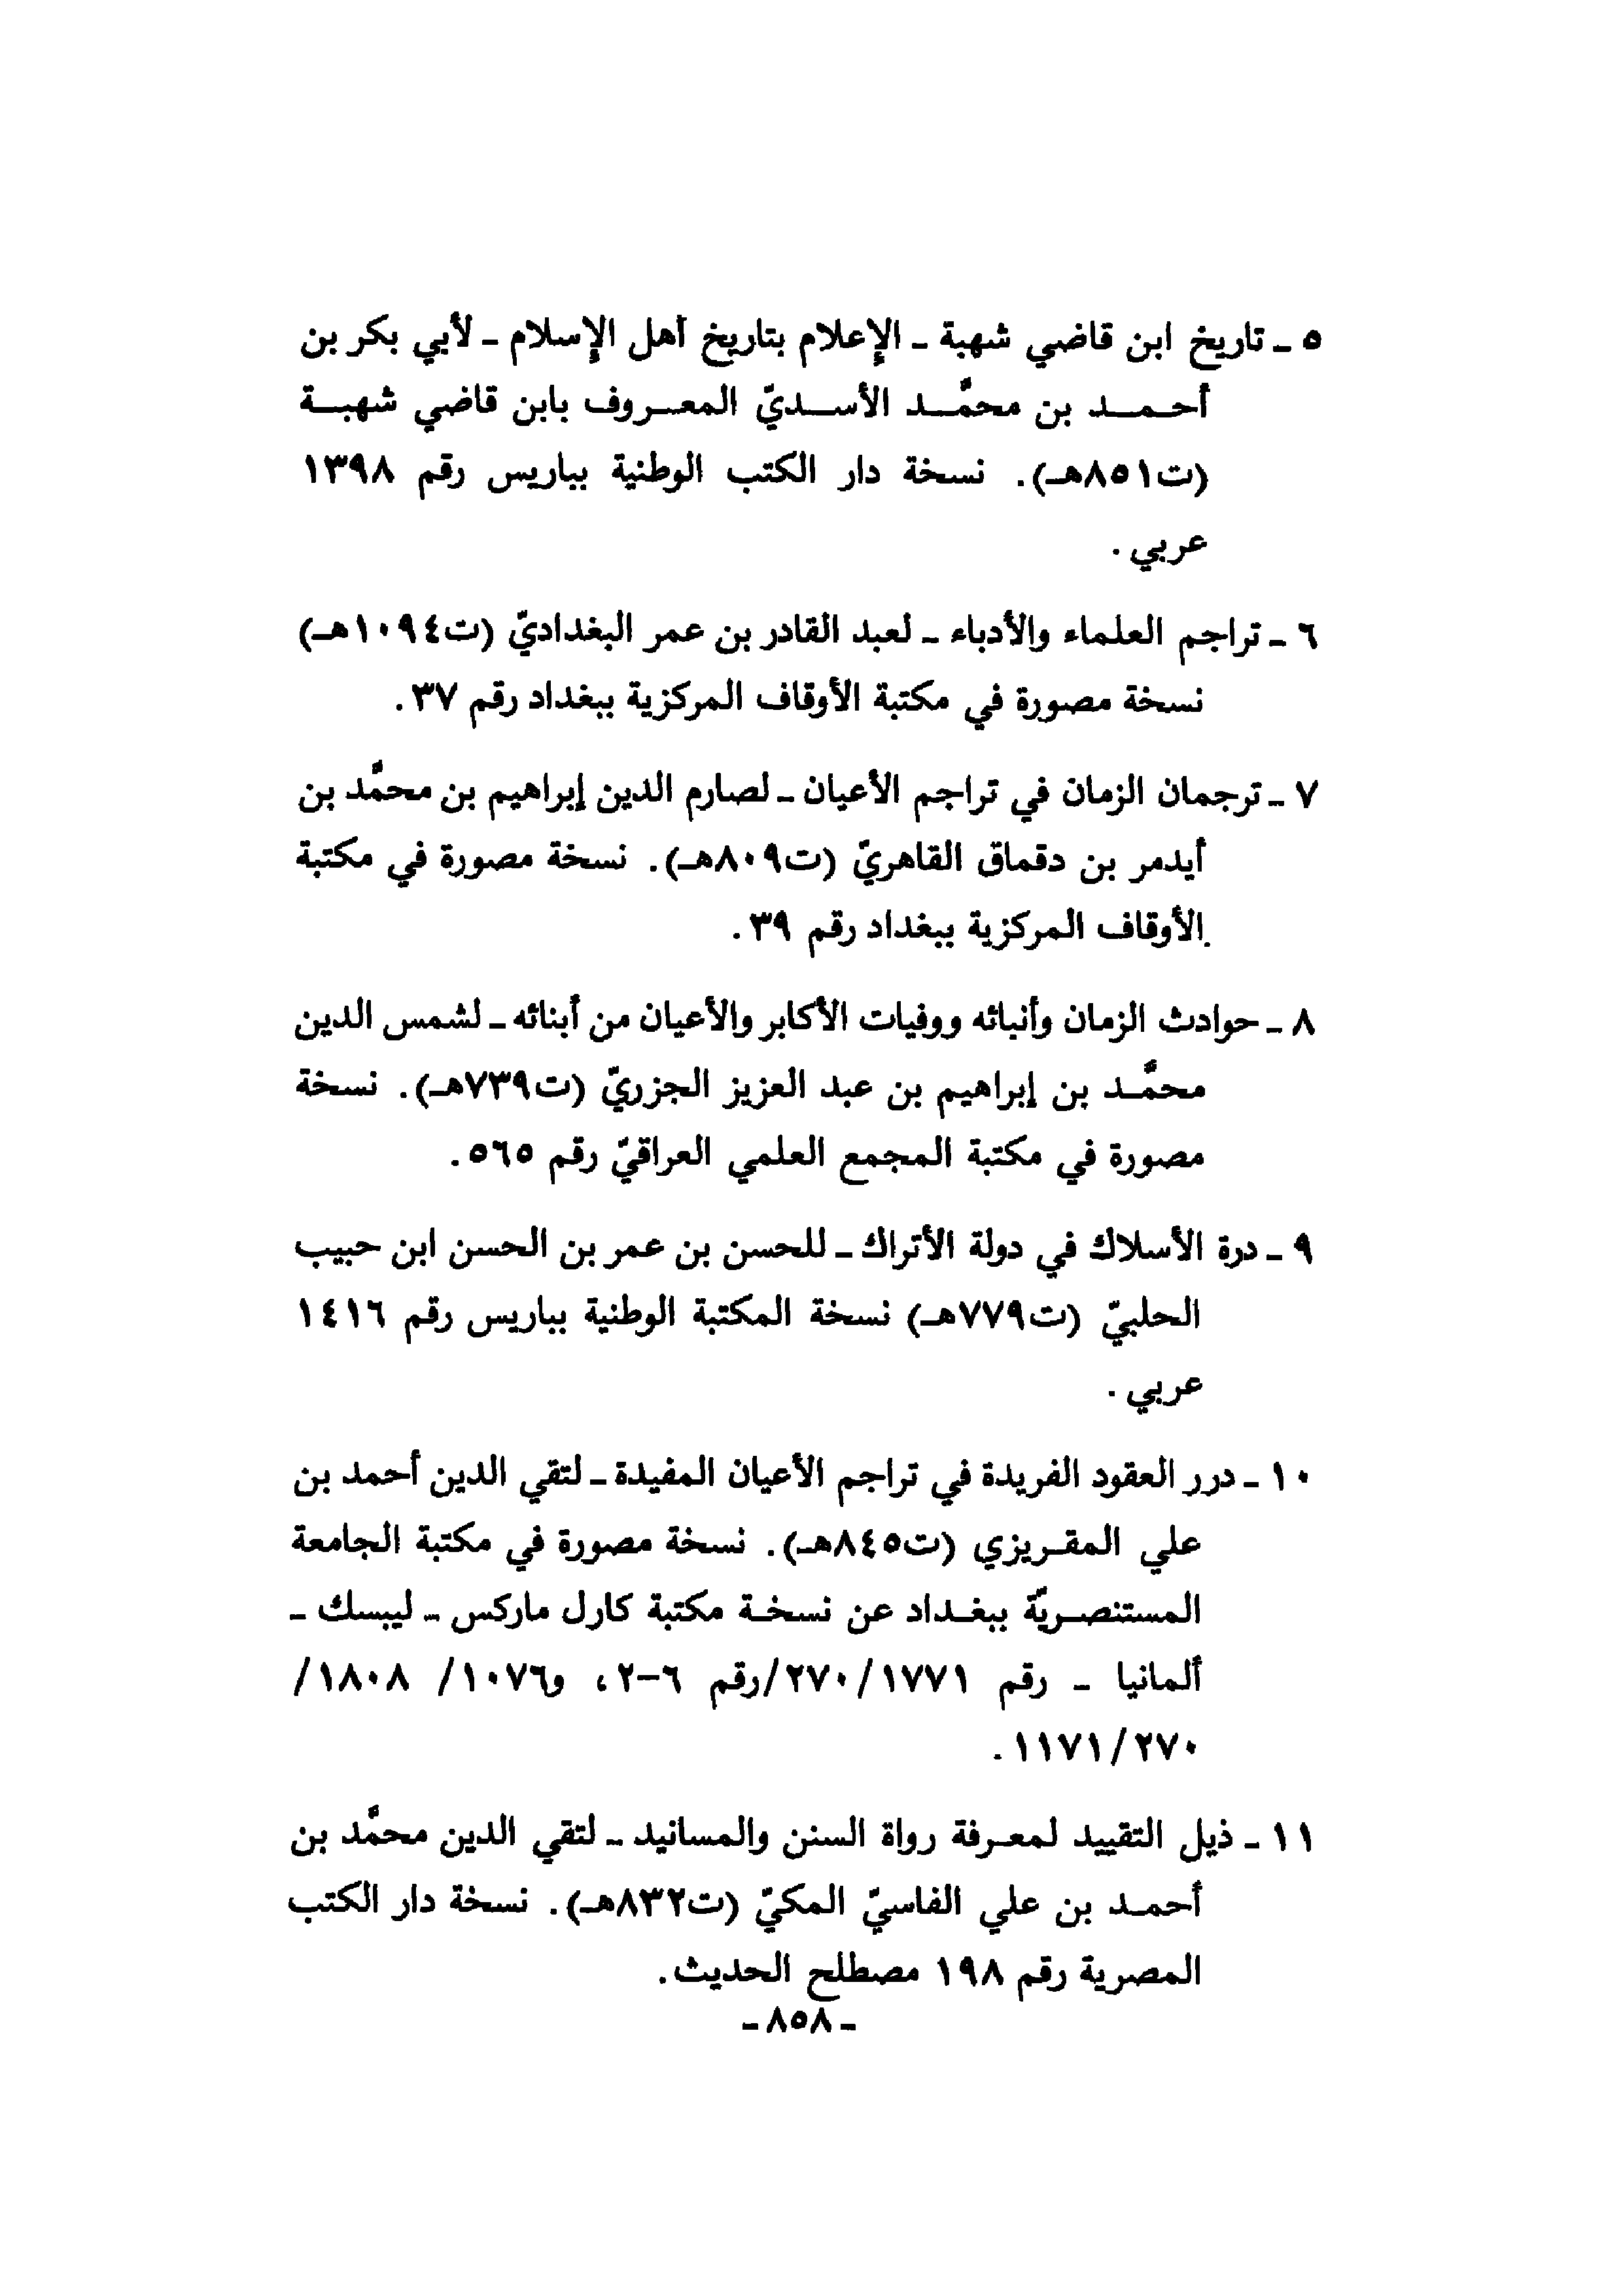 ٥ ـ تاريخ ابن قاضي شهبة ـ الإعلام بتاريخ أهل الإسلام ـ لأبي بكر بن
أحمد بن محمَّد الأسديّ المعروف بابن قاضي شهبة
(ت٨٥١هـ). نسخة دار الكتب الوطنية بباريس رقم ١٣٩٨
عربي.
٦ ـ تراجم العلماء والأدباء ـ لعبد القادر بن عمر البغداديّ (ت١٠٩٤هـ)
نسخة مصورة في مكتبة الأوقاف المركزية ببغداد رقم ٣٧.
٧ ـ ترجمان الزمان في تراجم الأعيان ـ لصارم الدين إبراهيم بن محمَّد بن
أيدمر بن دقماق القاهريّ (ت٨٠٩هـ). نسخة مصورة في مكتبة
الأوقاف المركزية ببغداد رقم ٣٩.
٨ ـ حوادث الزمان وأنبائه ووفيات الأكابر والأعيان من أبنائه ـ لشمس الدين
محمَّد بن إبراهيم بن عبد العزيز الجزريّ (ت٧٣٩هـ). نسخة
مصورة في مكتبة المجمع العلمي العراقيّ رقم ٥٦٥.
٩ ـ درة الأسلاك في دولة الأتراك ـ للحسن بن عمر بن الحسن ابن حبيب
الحلبيّ (ت٧٧٩هـ) نسخة المكتبة الوطنية بباريس رقم ١٤١٦
عربي.
١٠ ـ درر العقود الفريدة في تراجم الأعيان المفيدة ـ لتقي الدين أحمد بن
علي المقريزي (ت٨٤٥هـ). نسخة مصورة في مكتبة الجامعة
المستنصريّة ببغداد عن نسخة مكتبة كارل ماركس ـ ليبسك ـ
ألمانيا ـ رقم ١٧٧١/٢٧٠/رقم ٦-٢، و١٠٧٦/ ١٨٠٨/
٢٧٠/١١٧١.
١١ ـ ذيل التقييد لمعرفة رواة السنن والمسانيد ـ لتقي الدين محمَّد بن
أحمد بن علي الفاسيّ المكيّ (ت٨٣٢هـ). نسخة دار الكتب
المصرية رقم ١٩٨ مصطلح الحديث.
ـ ٨٥٨ ـ